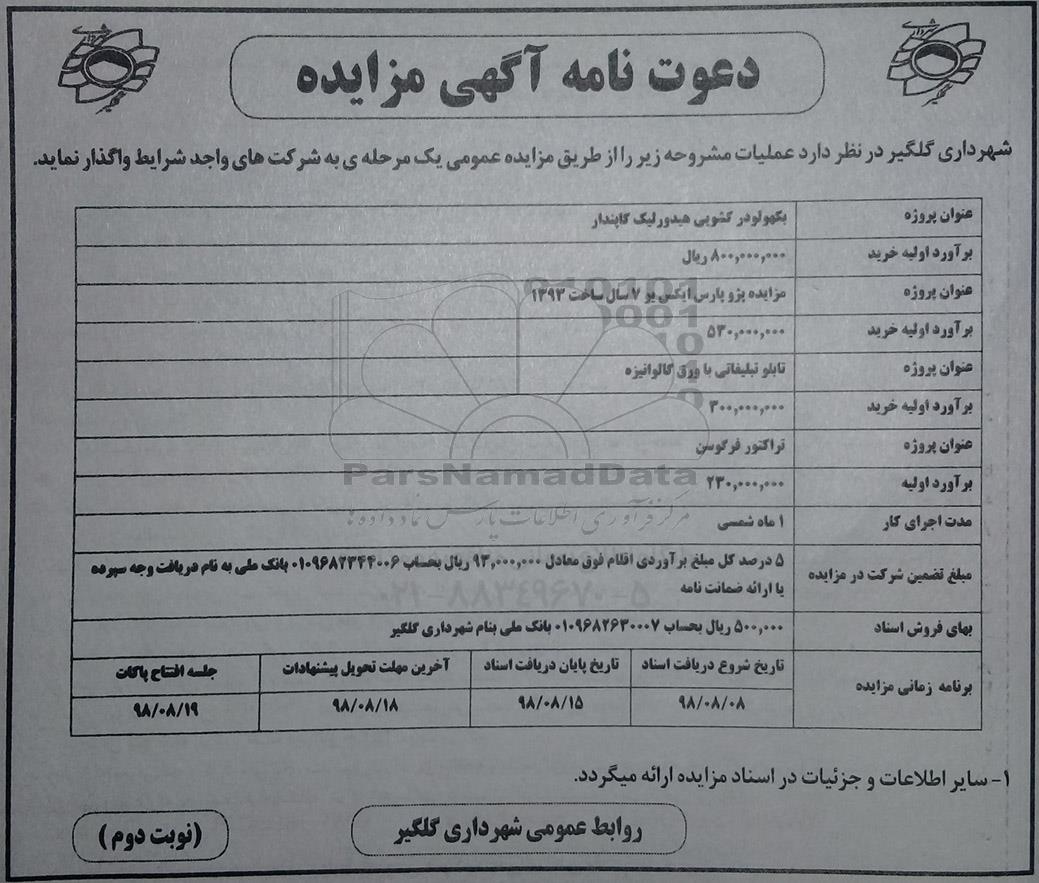 دعوت نامه آگهی مزایده
شهرداری گلگیر در نظر دارد عملیات مشروحه زیر را از طریق مزایده عمومی یک مرحله ی به شرکت های واجد شرایط واگذار نماید.
عنوان پروژه بکهولودر کشویی هیدورلیک کاپندار
برآورد اولیه خرید ۸۰۰,۰۰۰,۰۰۰ ریال
عنوان پروژه مزایده پژو پارس ایکس یو ۷ سال ساخت ۱۳۹۳
برآورد اولیه خرید ۵۳۰,۰۰۰,۰۰۰
عنوان پروژه تابلو تبلیغاتی با ورق گالوانیزه
برآورد اولیه خرید ۳۰۰,۰۰۰,۰۰۰
عنوان پروژه تراکتور فرگوسن
برآورد اولیه ۲۳۰,۰۰۰,۰۰۰
مدت اجرای کار ۱ ماه شمسی
مبلغ تضمین شرکت در مزایده ۵ درصد کل مبلغ برآوردی اقلام فوق معادل ۹۳,۰۰۰,۰۰۰ ریال بحساب ۰۱۰۹۶۸۲۳۴۴۰۰۶ بانک ملی به نام دریافت وجه سپرده
یا ارائه ضمانت نامه
بهای فروش اسناد ۵۰۰,۰۰۰ ریال بحساب ۰۱۰۹۶۸۲۶۳۰۰۰۷ بانک ملی بنام شهرداری گلگیر
برنامه زمانی مزایده
تاریخ شروع دریافت اسناد تاریخ پایان دریافت اسناد آخرین مهلت تحویل پیشنهادات جلسه افتتاح پاکات
۹۸/۰۸/۰۸ ۹۸/۰۸/۱۵ ۹۸/۰۸/۱۸ ۹۸/۰۸/۱۹
ParsNamadData
مرکز فرآوری اطلاعات پارس نماد داده ها
۰۲۱-۸۸۳۴۹۶۷۰-۵
۱- سایر اطلاعات و جزئیات در اسناد مزایده ارائه میگردد.
روابط عمومی شهرداری گلگیر
(نوبت دوم)